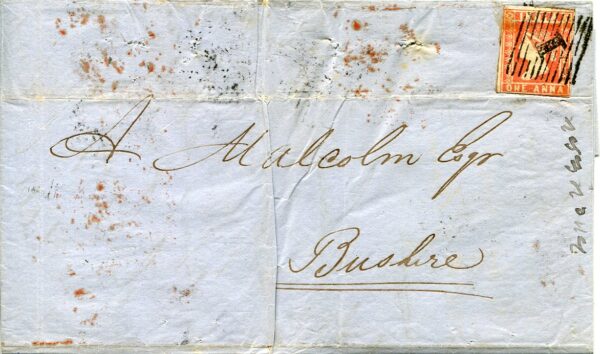 INDIA
ONE ANNA
A Malcolm Esqr
Bushire